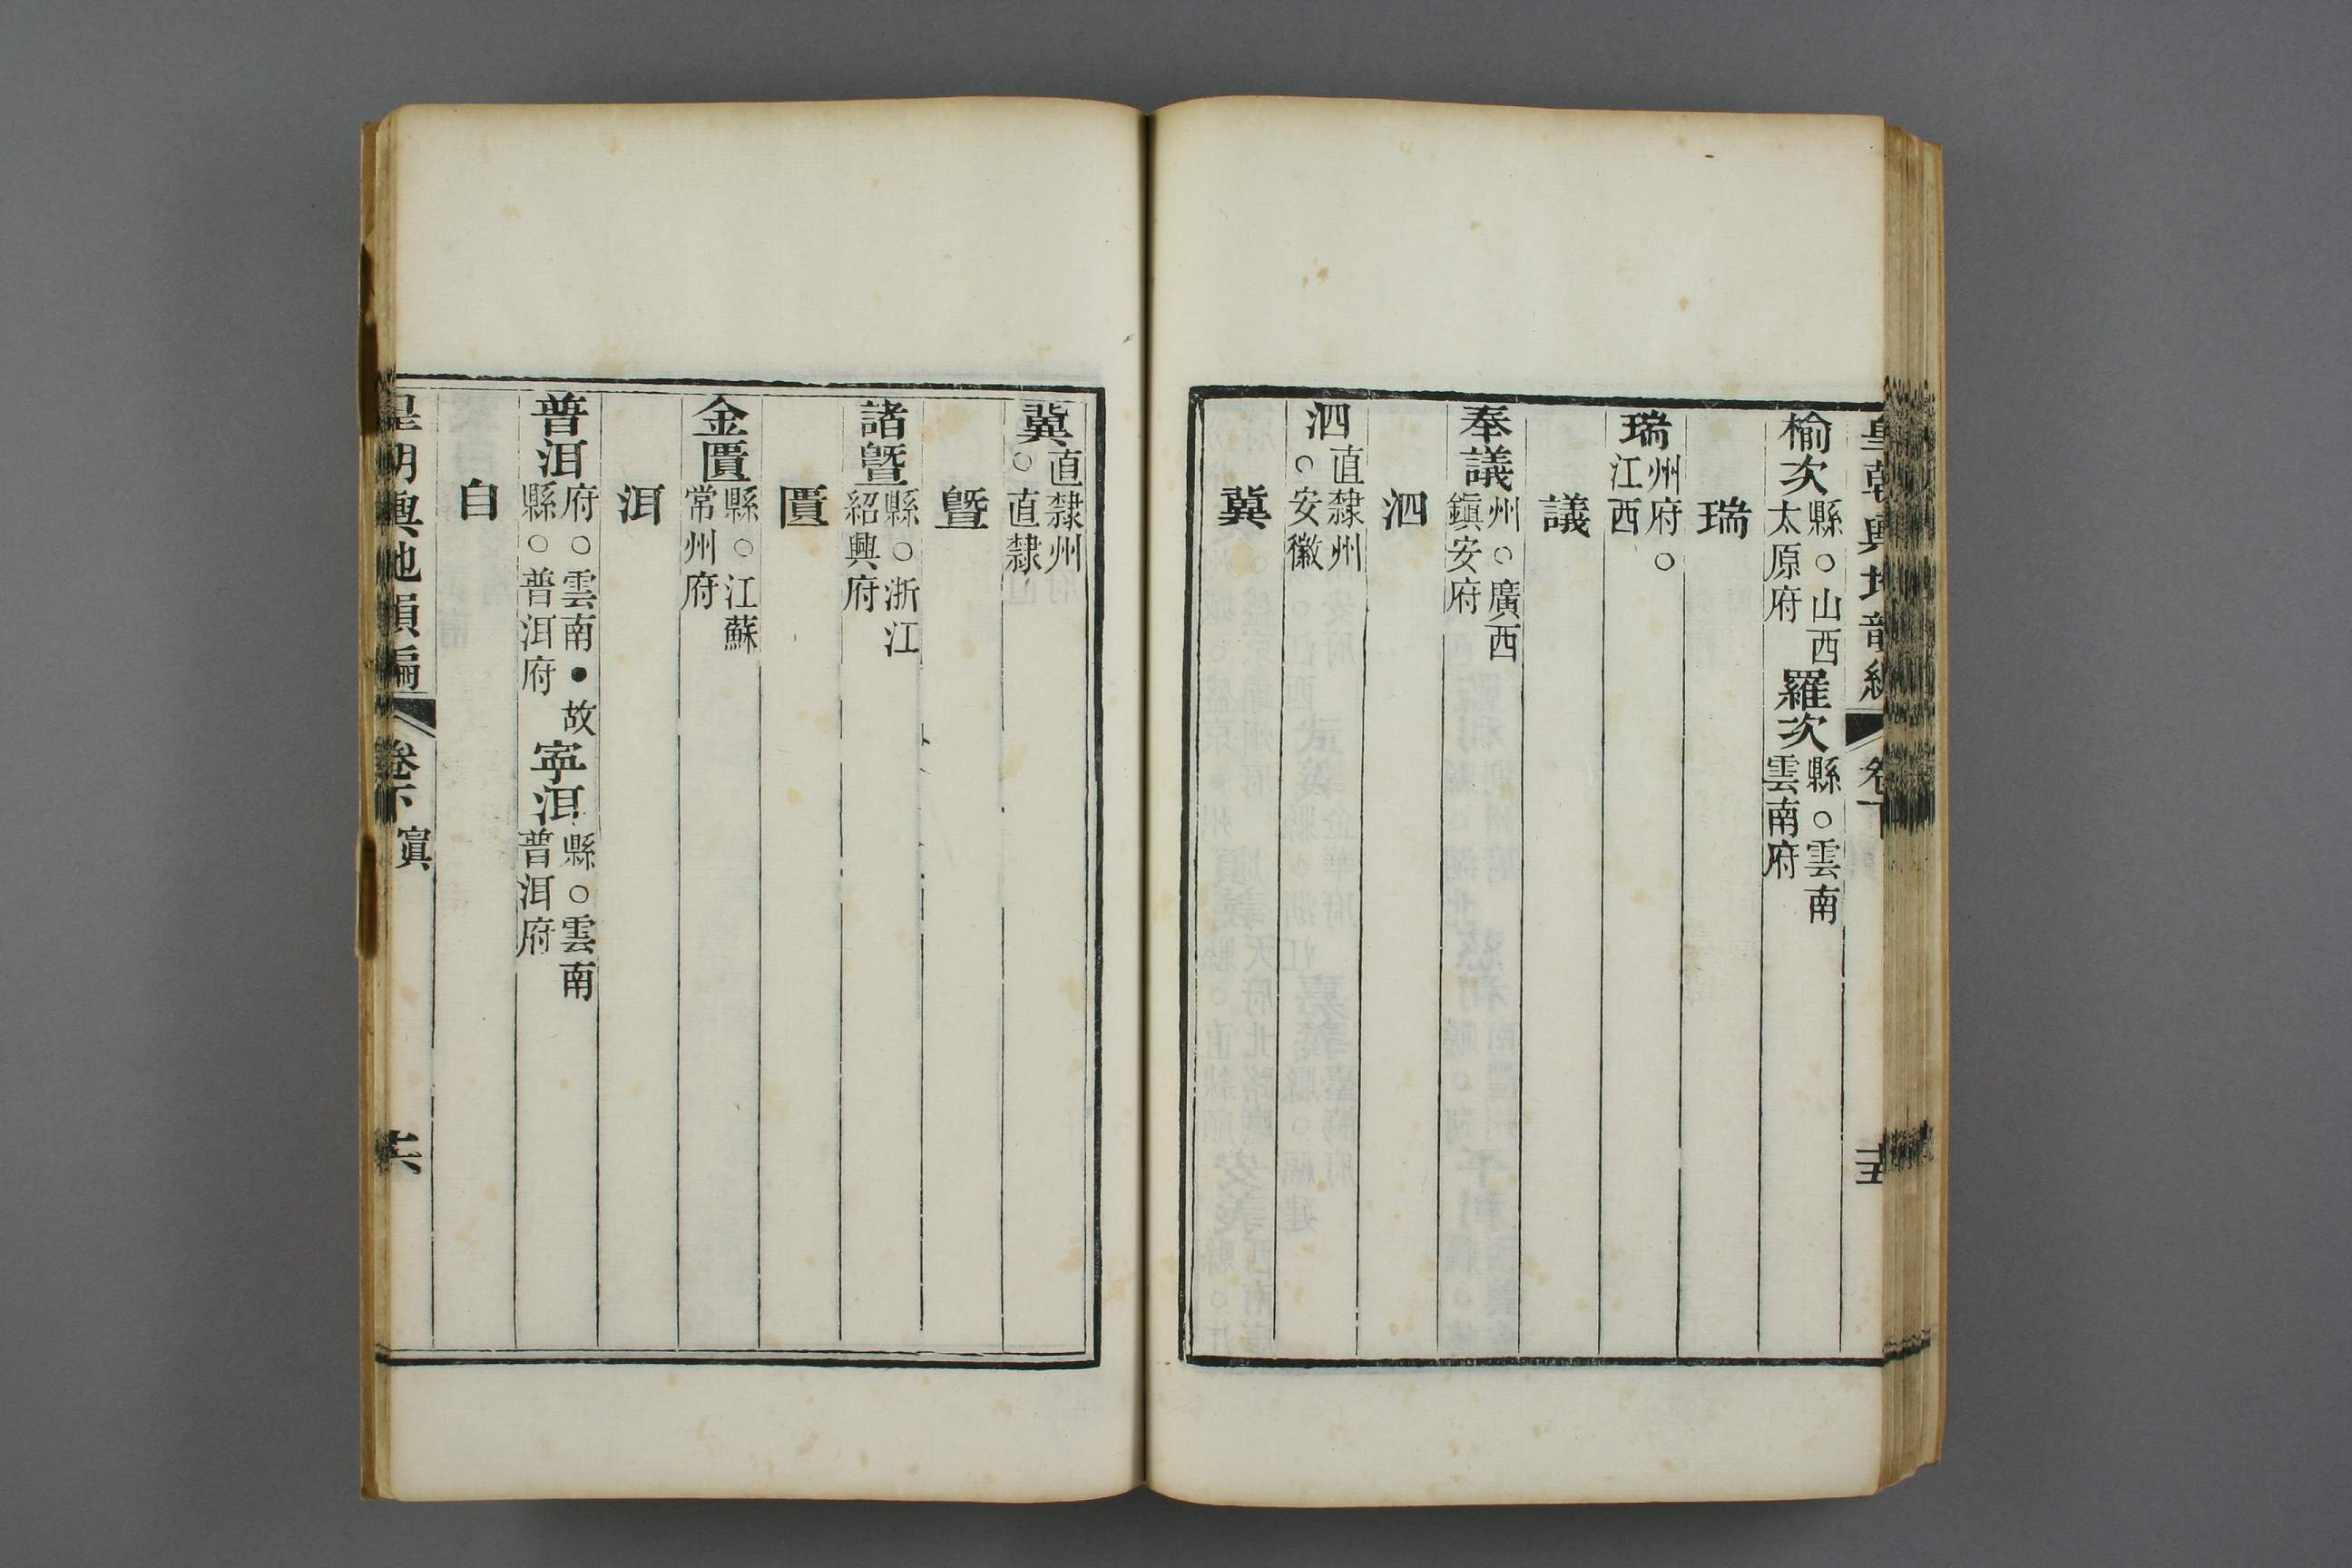 皇朝輿地韻編 卷下 十五
榆次縣○山西太原府 羅次縣○雲南雲南府
瑞
瑞州府○江西
議
奉議州○廣西鎮安府
泗
泗直隸州○安徽
冀
冀直隸州○直隸
曁
諸曁縣○浙江紹興府
匱
金匱縣○江蘇常州府
洱
普洱府○雲南●故縣○普洱府 寧洱縣○雲南普洱府
自
皇朝輿地韻編 卷下 寘 十六